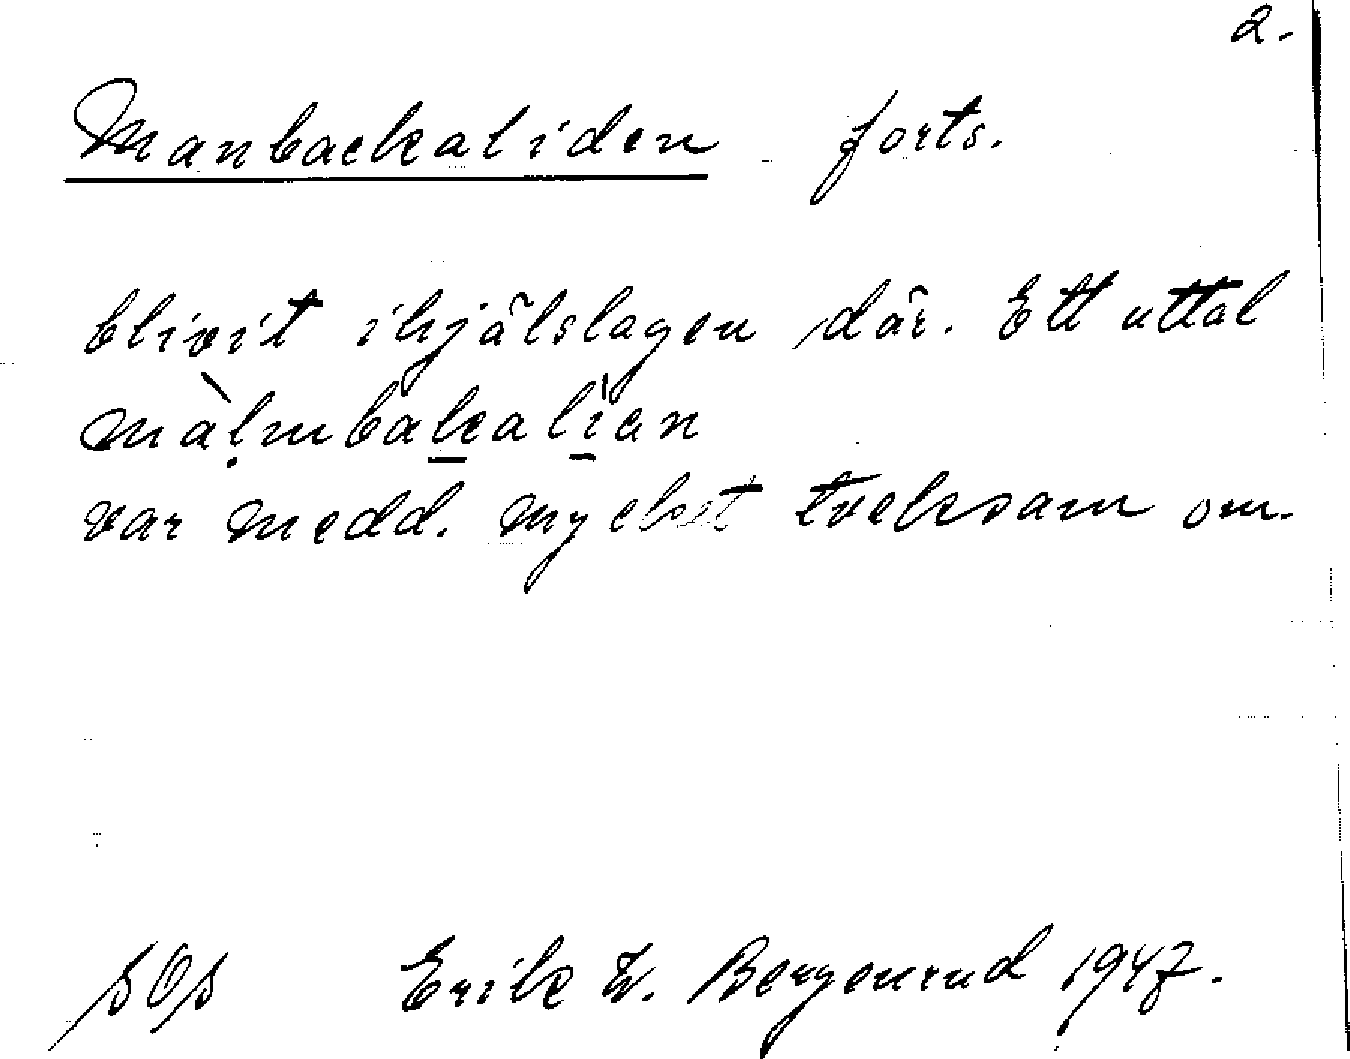 2.
Manbackaliden forts.
blivit ihjälslagen där. Ett uttal
màḷmbaḵalì̱an
var medd. mycket tveksam om.
SOS Erik W. Bergenrud 1947.